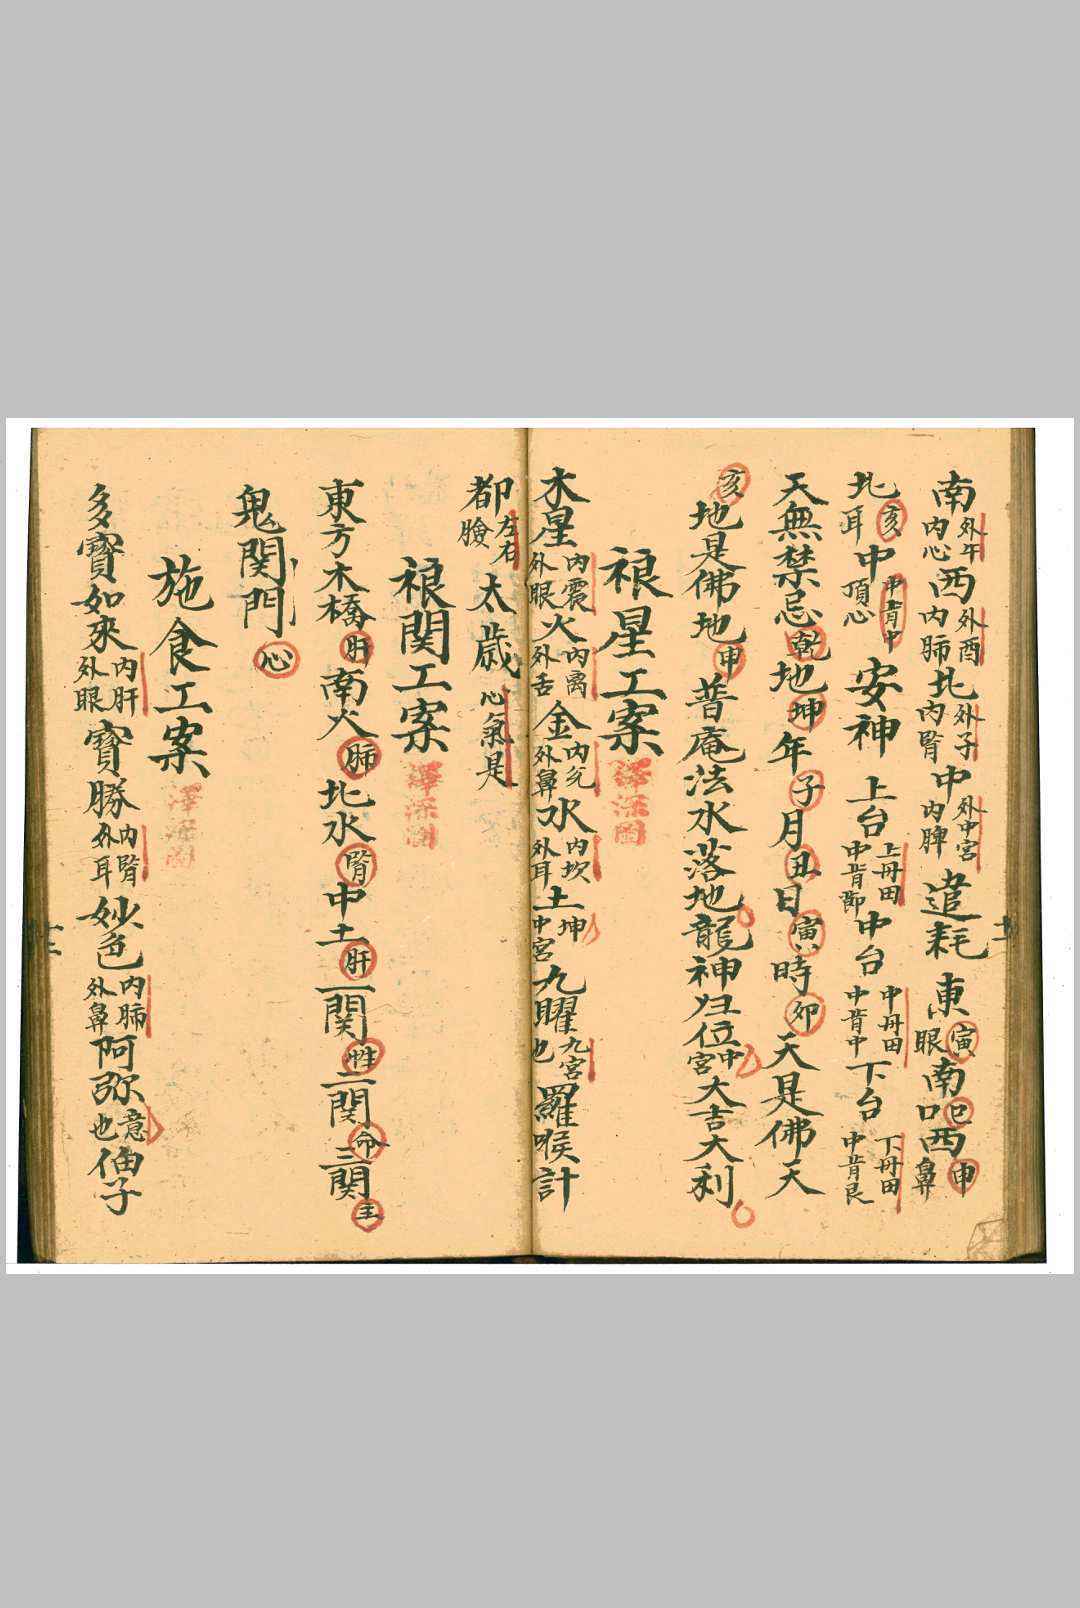 南外午内心西外酉内肺北外子内腎中外中宮内脾遣耗東寅眼南巳口西申鼻
北亥耳中中背中頂心安神上台上丹田中背節中台中丹田中背中下台下丹田中背艮
天無禁忌乾地坤年子月丑日寅時卯天是佛天
亥地是佛地申普庵法水落地龍神归位中宮大吉大利
祿星工案澤深圖
木星内震外眼火内离外舌金内兊外鼻水内坎外耳土坤中宮九曜九宮也羅㬋計
都左右臉太歲心氣是
祿関工案澤深圖
東方木橋肝南火肺北水腎中土肝一関性二関命三関主
鬼関門心
施食工案澤深圖
多寶如來内肝外眼寶勝内腎外耳妙色内肺外鼻阿弥意也伷子